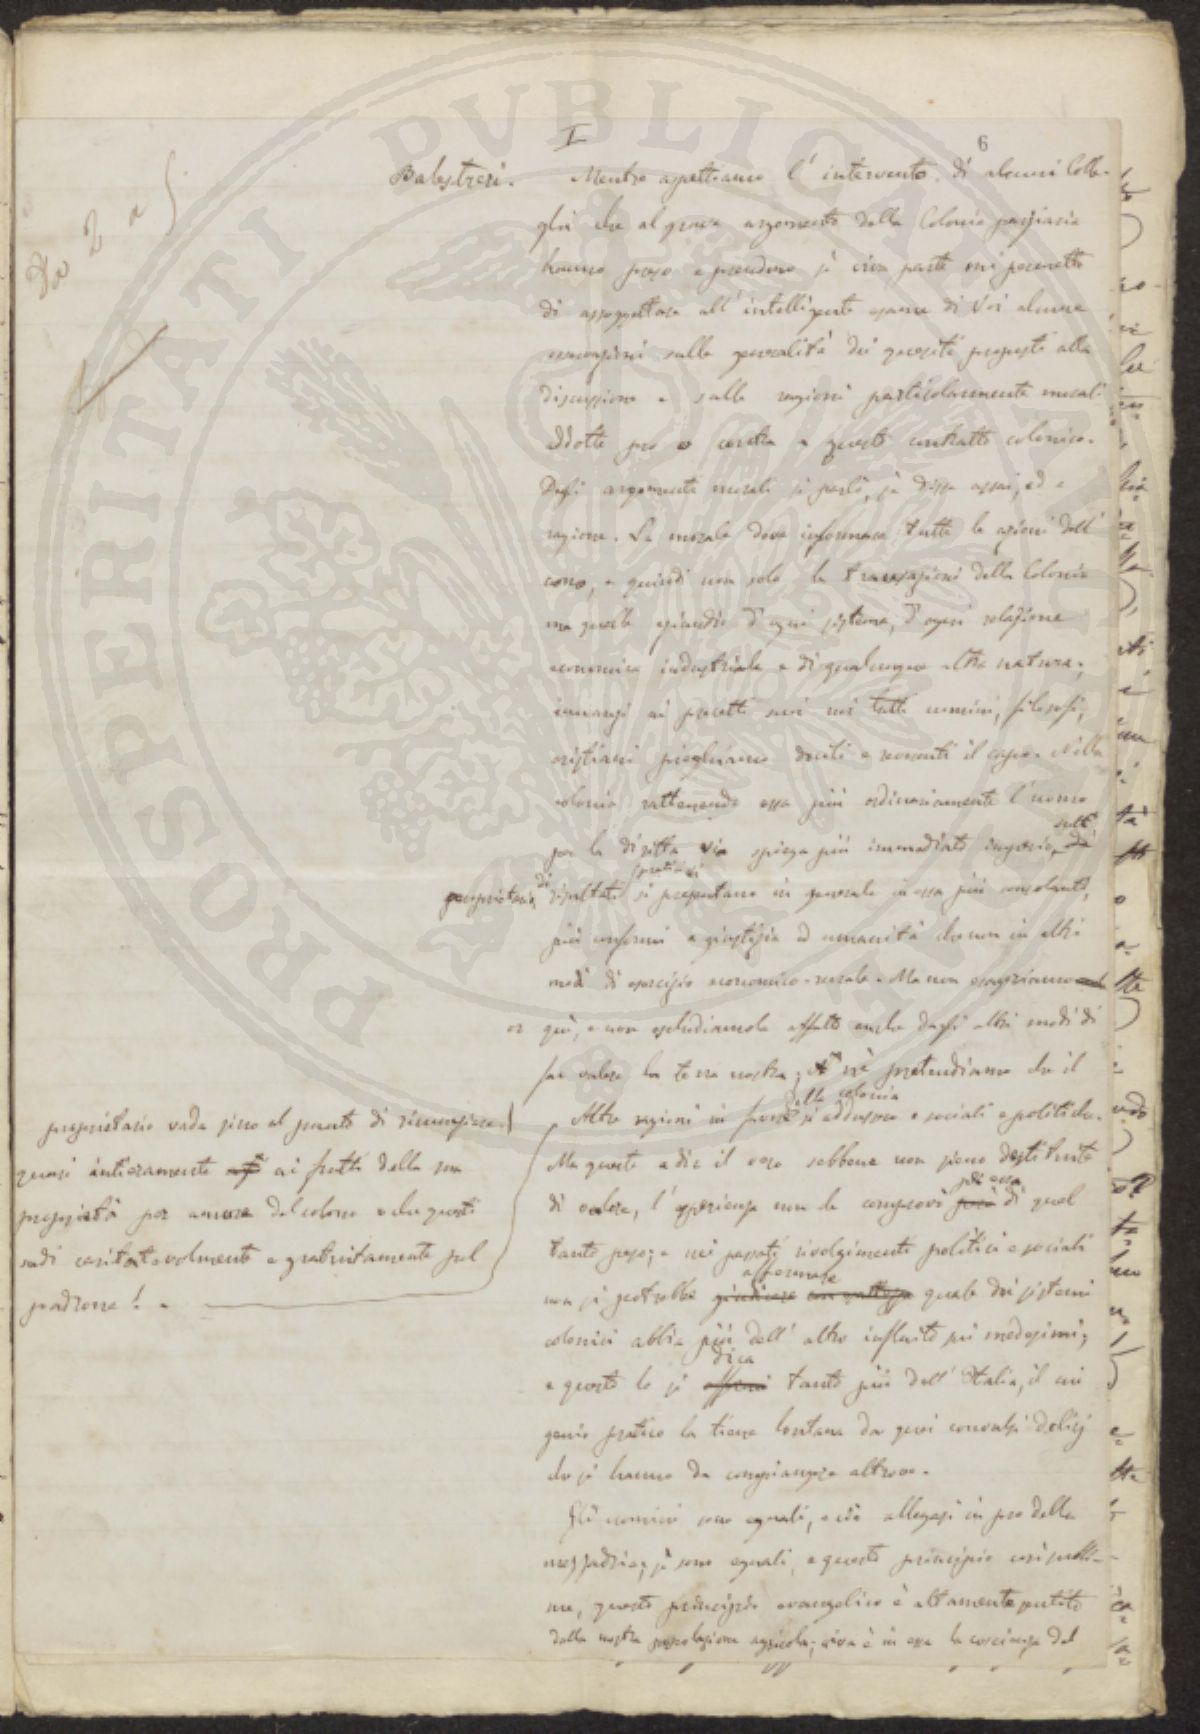 I
6
Da 2 a 5
Balestreri. Mentre aspettiamo l'intervento di alcuni Colle-
ghi che al grave argomento della Colonia parziaria
hanno preso e prendono sì viva parte mi permetto
di assoggettare all'intelligente esame di Voi alcune
osservazioni sulla generalità dei quesiti proposti alla
discussione e sulle ragioni particolarmente morali
addotte pro e contra a questo contratto colonico.
Degli argomenti morali si parlò, si disse assai, ed a
ragione. La morale deve informare tutte le azioni dell'
uomo, e quindi non solo le transazioni della Colonia
ma quelle eziandio d'ogni sistema, d'ogni relazione
economica industriale e di qualunque altra natura;
innanzi ai precetti suoi noi tutti uomini, filosofi,
cristiani pieghiamo devoti e reverenti il capo. Nella
colonia rattenendo essa più ordinariamente l'uomo
per la diritta via spiega più immediato imperio, sulle
proprietario, di risultati pratici si presentano in generale in essa più consolanti,
più conformi a giustizia ed umanità che non in altri
modi di esercizio economico-rurale. Ma non esageriamo
or più, e non escludiamola affatto anche dagli altri modi di
far valere la terra nostra; nè pretendiamo che il
proprietario vada sino al punto di rinunziare
quasi intieramente ai frutti della sua
proprietà per amore del colono e che questi
sudi caritatevolmente e gratuitamente pel
padrone! -
Altre ragioni in favore della colonia si addussero e sociali e politiche.
Ma queste a dir il vero sebbene non sieno destituite
di valore, l'esperienza non le comprovò per essa di quel
tanto peso; e nei passati rivolgimenti politici e sociali
non si potrebbe giudicare affermare quale dei sistemi
colonici abbia più dell'altro influito sui medesimi;
e questo lo si dica tanto più dell'Italia, il cui
genio pratico la tiene lontana da quei convulsi delirj
che si hanno da compiangere altrove.
Gli uomini sono eguali, e ciò allegasi in pro della
mezzadria; sì sono eguali, e questo principio così subli-
me, questo principio evangelico è altamente sentito
dalla nostra popolazione agricola; viva è in essa la coscienza del